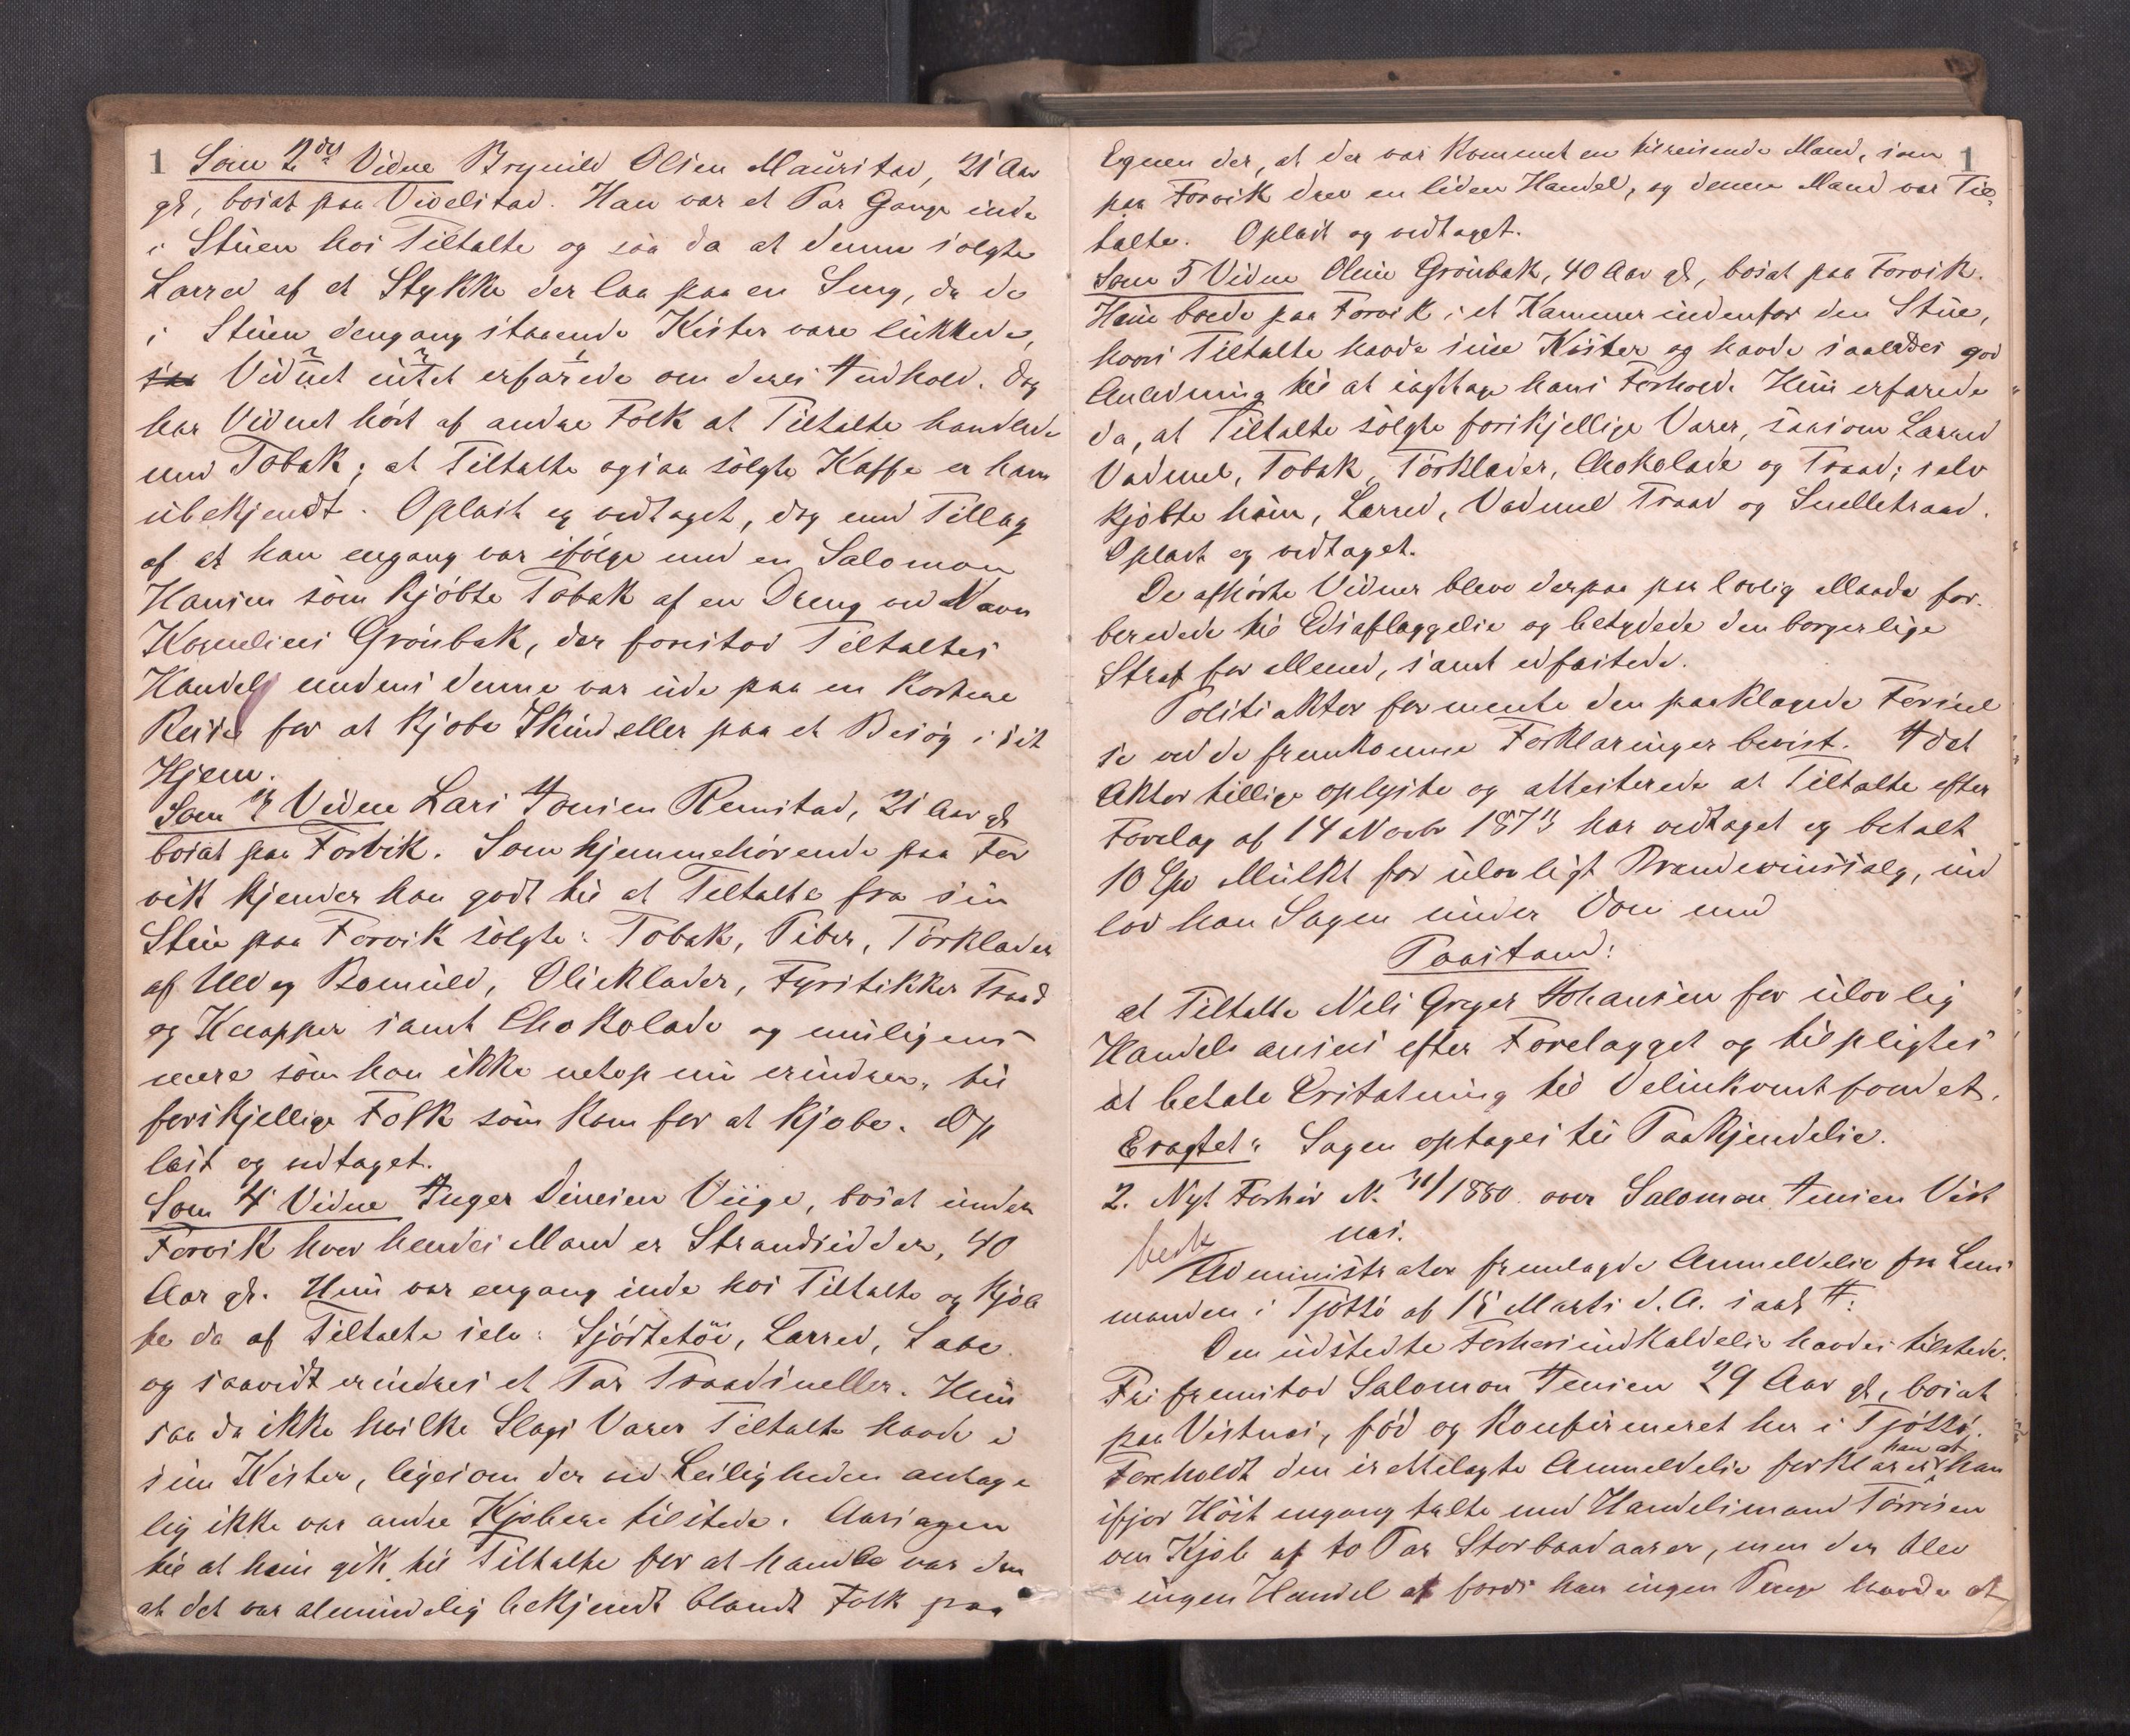 1
Som 2det Vidne Brynild Olsen Maursstad, 21 Aar
gl, bosat paa Videlstad. Han var et Par Gange inde
i Stuen hos Tiltalte og saa da at denne solgte
Lærred af et Stykke der laa paa en Seng, da de
i Stuen dengang staaende Kister vare lukkede,
saa Vidnet intet erfarede om deres Indhold. Dog
har Vidnet hört af andre Folk at Tiltalte handlede
med Tobak; at Tiltalte ogsaa sölgte Kaffe er ham
ubekjendt. Oplæst og vedtaget, dog med Tillæg
af at han engang var ifölge med en Salomon
Hansen som kjöbte Tobak af en Dreng ved Navn
Kornelius Grönbæk, der forestod Tiltaltes
Handel medens denne var ude paa en kortere
Reise for at kjöbe Skind eller paa et Besög i sit
Hjem.
Som Vidne Lars Jonsen Remstad, 21 Aar gl
bosat paa Forvik. Som hjemmehörende paa For
vik kjender han godt til at Tiltalte fra sin
Stue paa Forvik solgte: Tobak, Piber, Törklæder
af Uld og Bomuld, Olieklæder, Fyrstikker Traad
og Knapper samt Chokolade og muligens
mere som han ikke netop nu erindrer, til
forskjellige Folk som kom for at kjöbe. Op
læst og vedtaget.
Som 4 Vidne Inger Dinesen Viige, bosat under
Forvik hvor hendes Mand er Strandsidder, 40
Aar gl. Hun var engang inde hos Tiltalte og kjöb
te da af Tiltalte selv: Skjörtetöi, Lærred, Sæbe
og saavidt erindres et Par Traadsneller. Hun
saa da ikke hvilke Slags Varer Tiltalte havde i
sine Kister, ligesom der ved Leiligheden antage
lig ikke var andre Kjöbere tilstede. Aarsagen
til at hun gik til Tiltalte for at handle var den
at det var almindelig bekjendt blandt Folk paa
1
Egnen der, at der var kommet en tilreisende Mand, som
paa Forvik drev en liden Handel, og denne Mand var Til-
talte. Oplæst og vedtaget.
Som 5 Vidne Oline Grönbæk, 40 Aar gl, bosat paa Forvik.
Hun boede paa Forvik i et Kammer indenfor den Stue,
hvori Tiltalte havde sine Kister og havde saaledes god
Anledning til at iagttage hans Forhold. Hun erfarede
da, at Tiltalte sölgte forskjellige Varer, saasom Lærred
Vadmel, Tobak, Törklæder, Chokolade og Traad; selv
kjöbte hun, Lærred, Vadmel Traad og Snelletraad.
Oplæst og vedtaget.
De afhörte Vidner bleve derpaa paa lovlig Maade for-
beredede til Edsaflæggelse og betydede den borgerlige
Straf for Mened, samt edfæstede.
Politiaktor formente den paaklagede Forseel
se ved de fremkomne Forklaringer bevist. Idet
Aktor tillige oplyste og attesterede at Tiltalte efter
Forelæg af 14 Novbr 187 har vedtaget og betalt
10 Spd Mulkt for ulovligt Brændevinssalg, ind
lod han Sagen under Dom med
Paastand:
at Tiltalte Nils Greger Johansen for ulovlig
Handel ansees efter Forelægget og tilpligtes
at betale Erstatning til Delinkventfondet.
Eragtet: Sagen optages til Paakjendelse.
2. Nyt Forhör N. /1880 over Salomon Jensen Vist
næs.
besk
Administrator fremlagde Anmeldelse fra Lens
manden i Tjöttö af 15 Marts d. A. saal #:
Den udstedte Forhörsindkaldelse havdes tilstede.
Fri fremstod Salomon Jensen 29 Aar gl, bosat
paa Vistnæs, föd og konfirmeret her i Tjöttö.
Foreholdt den irettelagte Anmeldelse forklarer han at han
ifjor Höst engang talte med Handelsmand Törrisen
om Kjöb af to Par Storbaadaarer, men der blev
ingen Handel af fordi han ingen Penge havde at